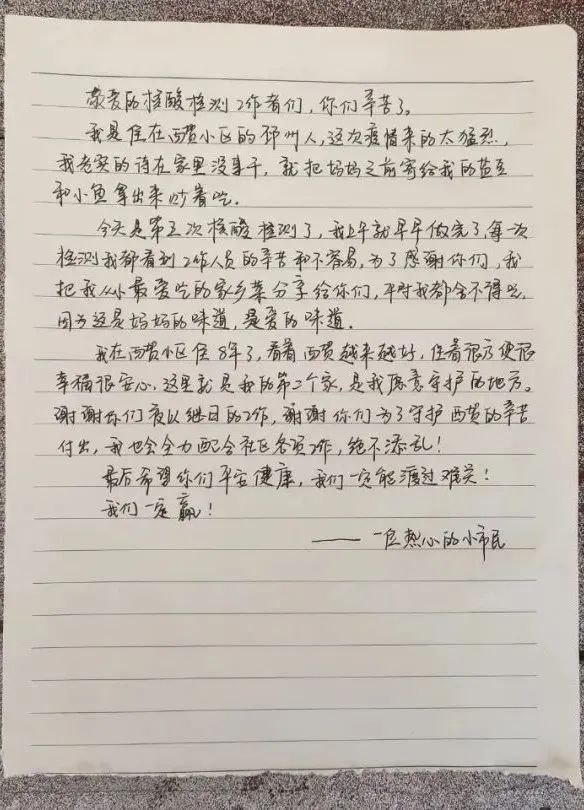 敬爱的核酸检测工作者们，你们辛苦了。
我是住在西贾小区的邳州人，这次疫情来的太猛烈，
我老实的待在家里没事干，就把妈妈之前寄给我的盐豆
和小鱼拿出来炒着吃．
今天是第三次核酸检测了，我上午就早早做完了，每次
检测我都看到工作人员的辛苦和不容易，为了感谢你们，我
把我从小最爱吃的家乡菜分享给你们，平时我都舍不得吃，
因为这是妈妈的味道，是爱的味道．
我在西贾小区住8年了，看着西贾越来越好，住着很方便很
幸福很安心，这里就是我的第二个家，是我愿意守护的地方。
谢谢你们夜以继日的工作，谢谢你们为了守护西贾的辛苦
付出，我也会全力配合社区各项工作，绝不添乱！
最后希望你们平安健康，我们一定能渡过难关！
我们一定赢！
——一位热心的小市民